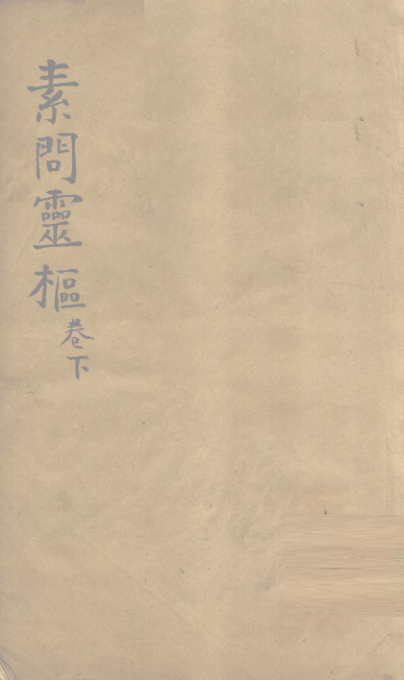 素問靈樞卷下